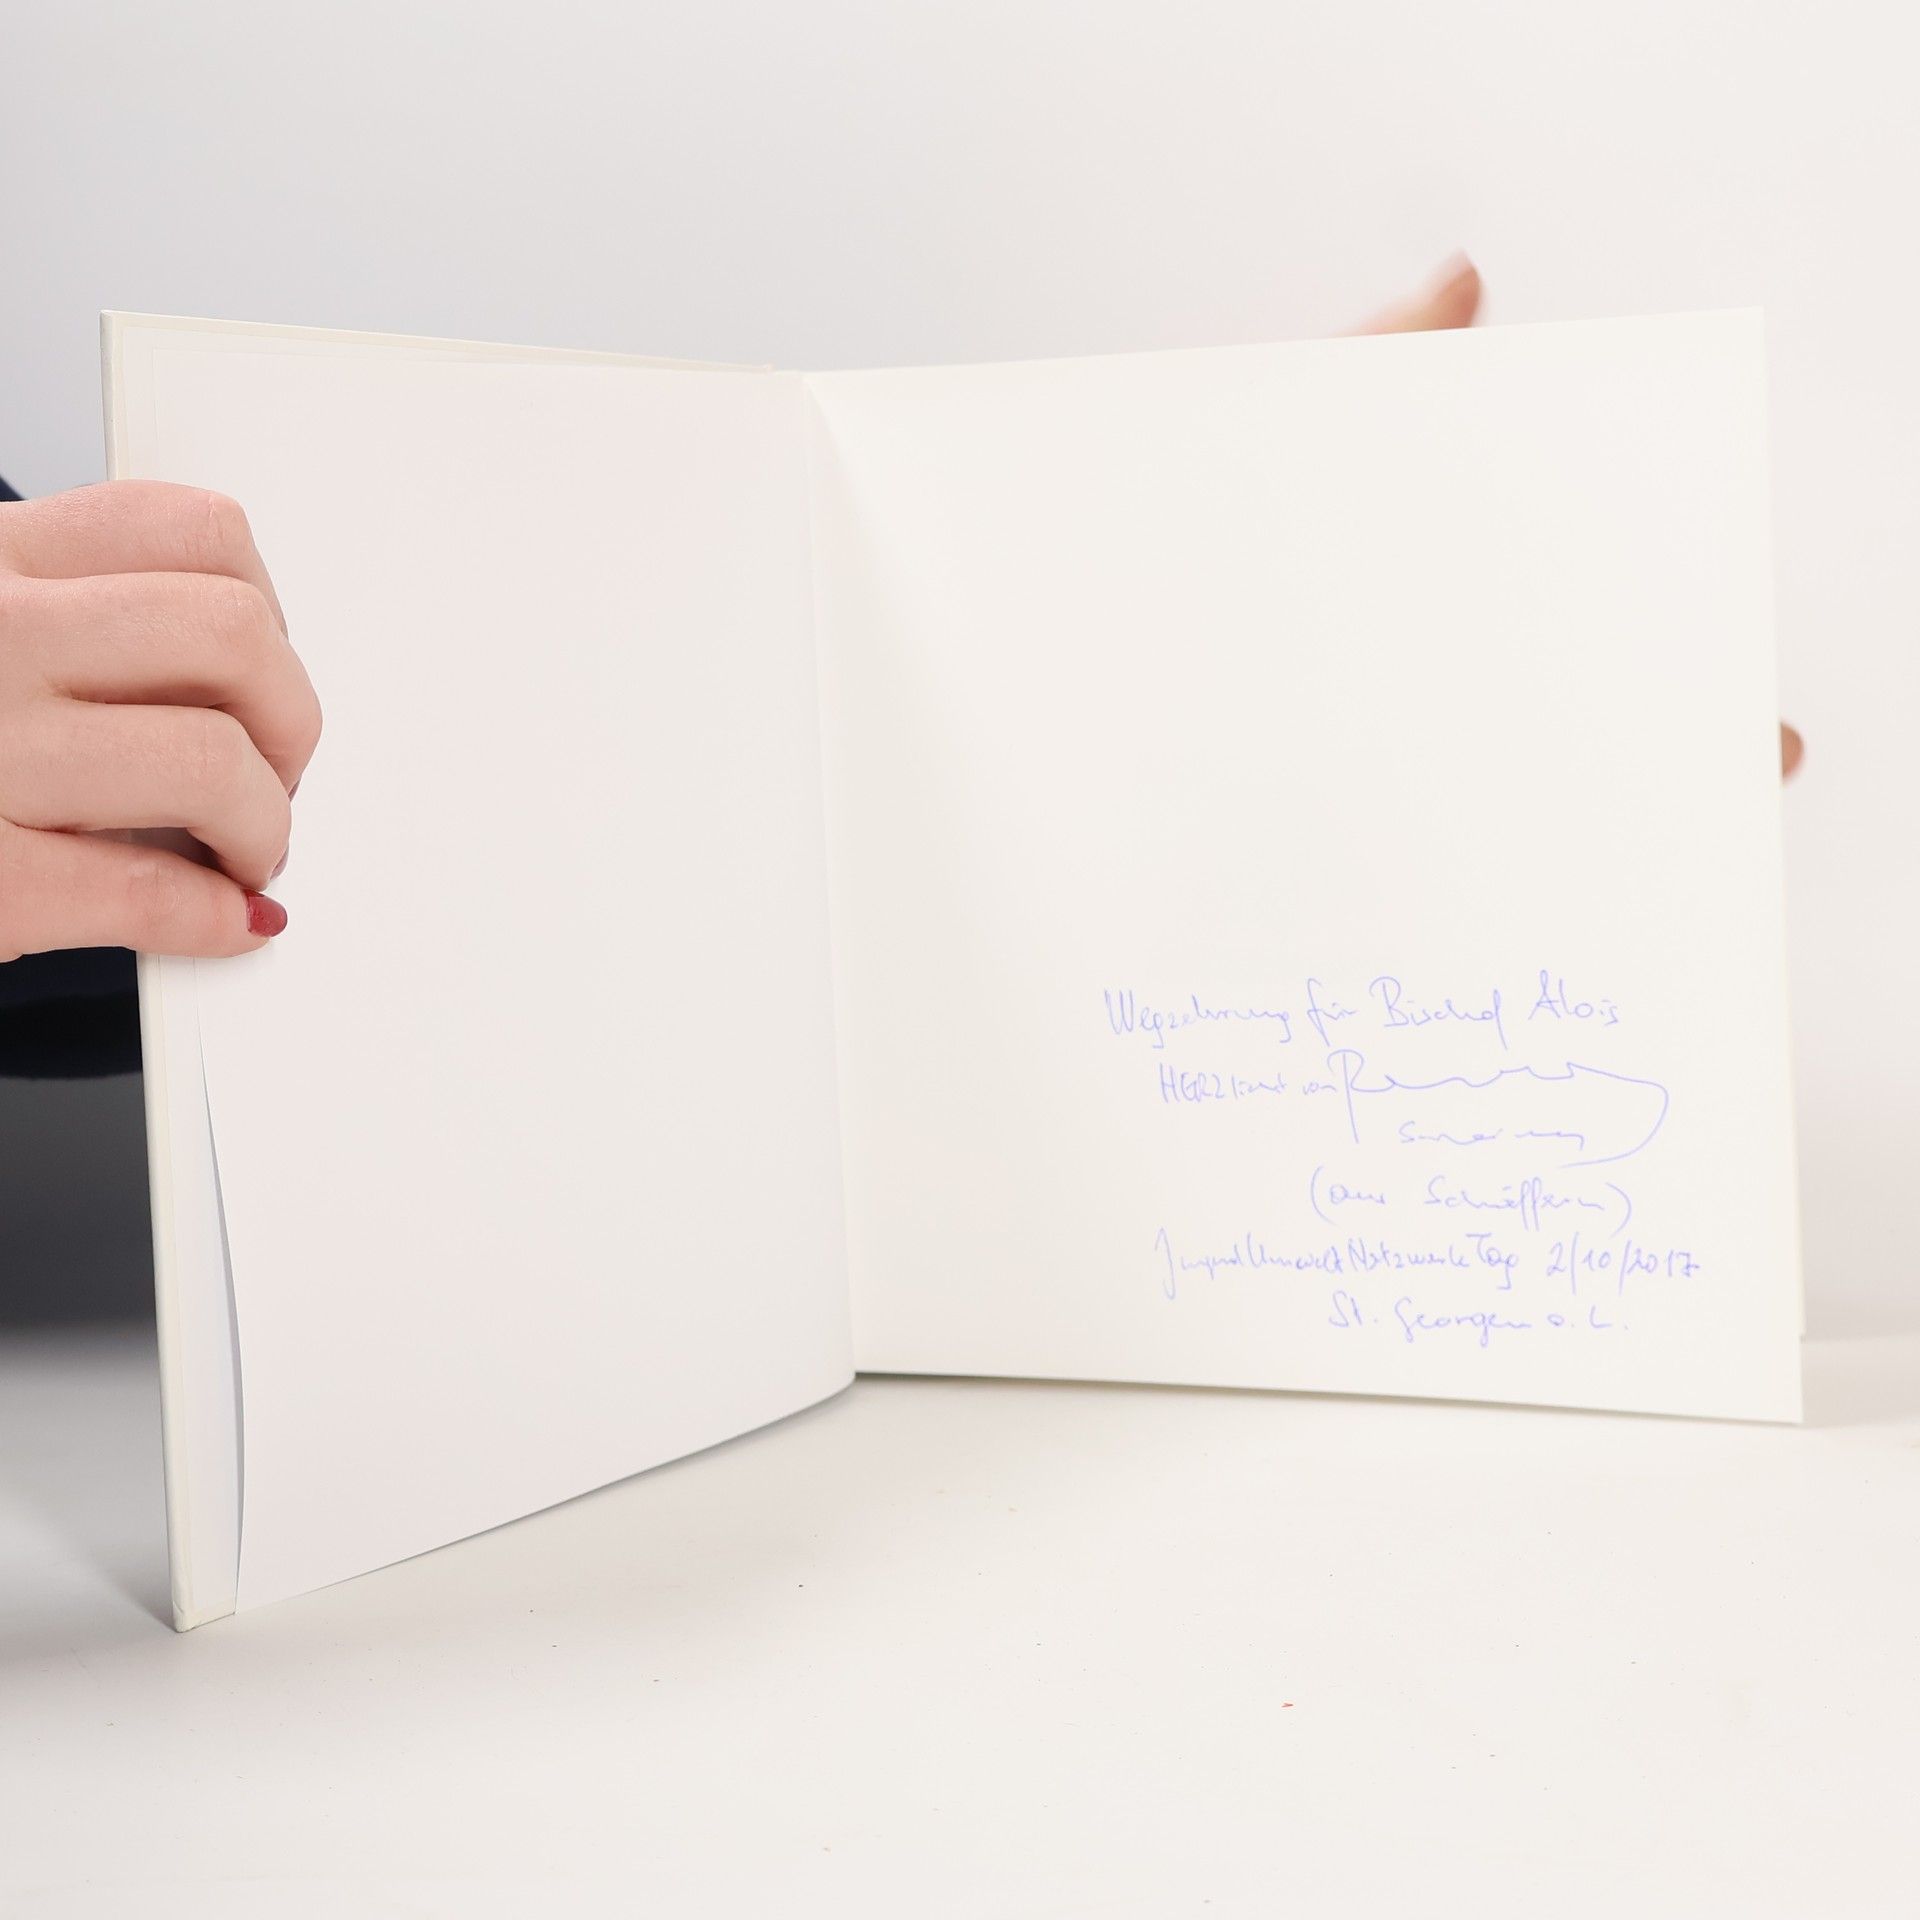 Wegzehrung für Bischof Alois
HERZlichst von
(aus Schäffern)
JugendUmweltNetzwerkTag 2/10/2017
St. Georgen a. L.